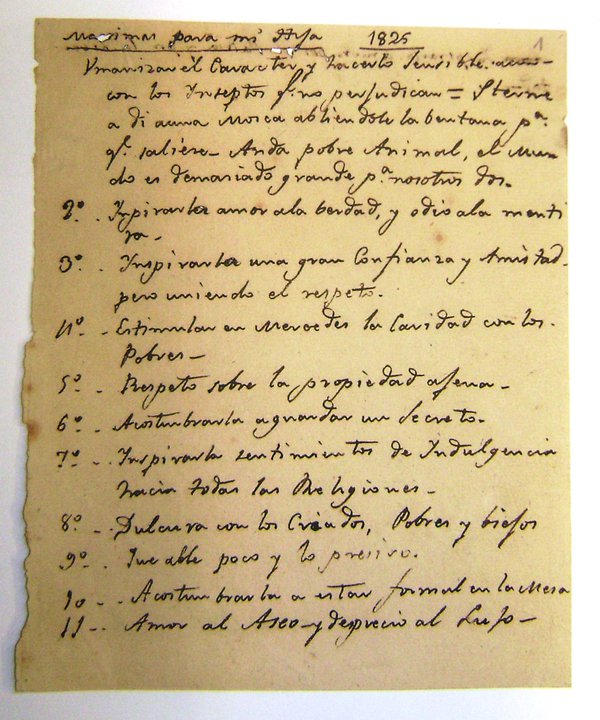 Maximas para mi Hija 1825
1
Vmanizar el Caracter y hacerlo Sensible aun
con los Inseptos q.e no perjudican = Sterne
a di aùna Mosca abriendole la bentana p.a
q.e saliese - Anda pobre Animal, el Mun-
do es demasiado grande p.a nosotros dos.
2º. Inpirarla amor ala berdad, y odio ala menti
ra-
3º. Inspirarla una gran Confianza y Amistad
pero uniendo el respeto.
4º. Estimular en Mercedes la Caridad con los
Pobres-
5º. Respeto sobre la propiedad ajena-
6º. Acostumbrarla aguardar un Secreto.
7º. Inspirarla sentimientos de Indulgencia
hacia todas las Religiones-
8º. Dulsura con los Criados, Pobres y biejos
9º. Que able poco y lo presiso.
10. Acostumbrarla a estar formal en la Mesa
11. Amor al Aseo y desprecio al Lujo-